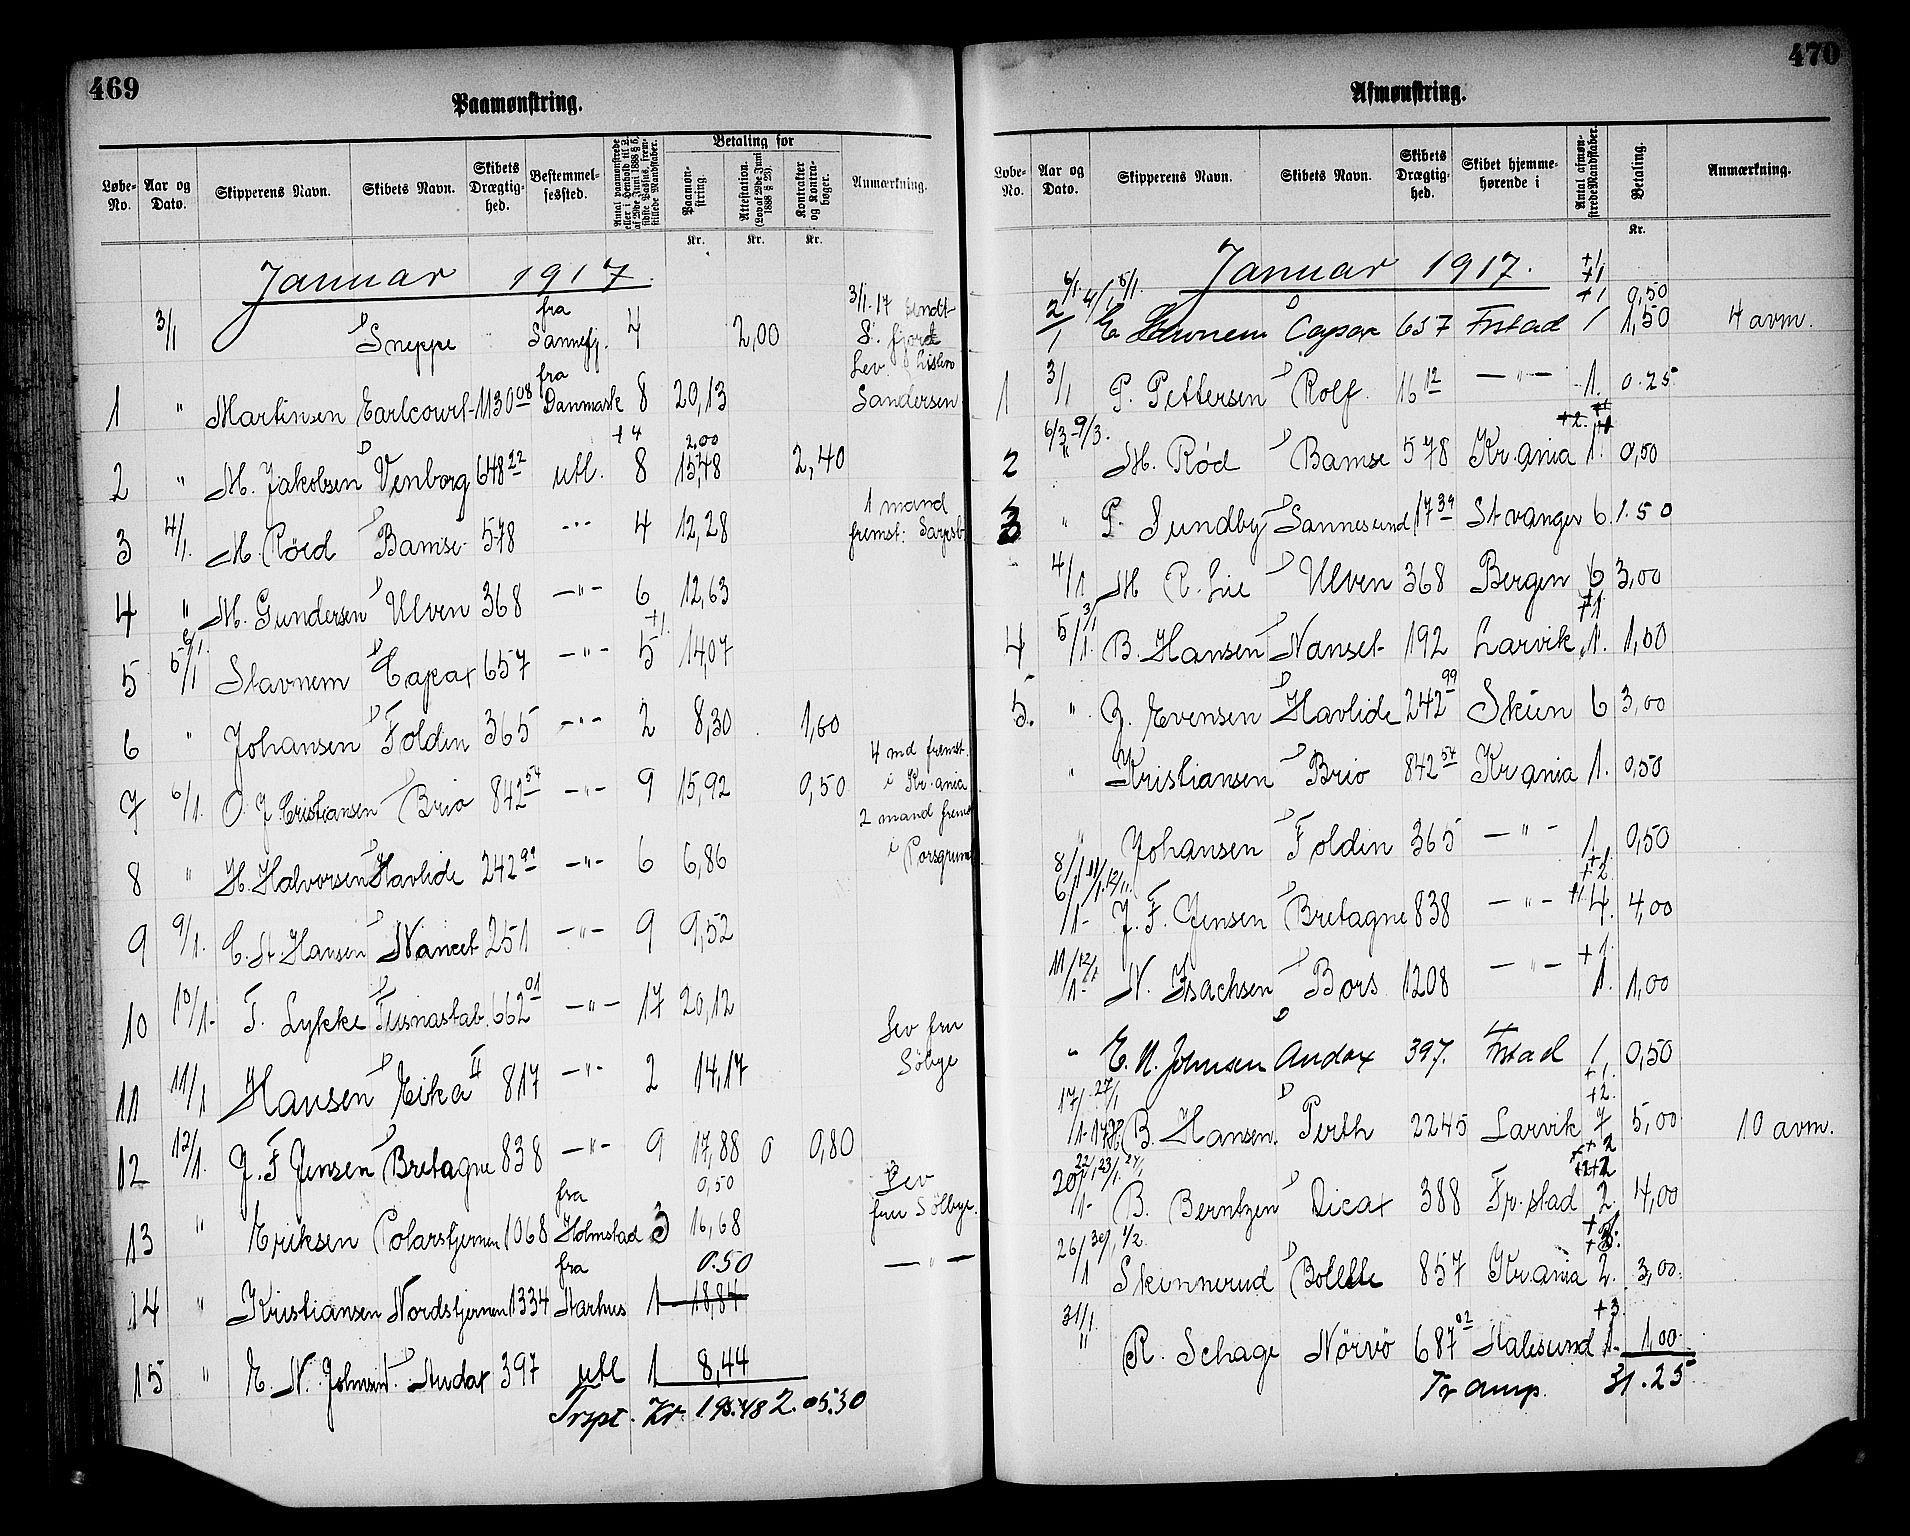 469
Paamønstring.
Løbe-No. Aar og Dato. Skipperens Navn. Skibets Navn. Skibets Drægtighed. Bestemmelsessted. Betaling for Paamønstring. Attestation. (Lov af 29de Juni 1888 § 23). Kontrakter og Kontrabøger. Anmærkning.
Kr. Kr. Kr.
Januar 1917.
3/1 D Sneppe fra Sannefj. 4 2,00 3/1-17 sendt S. fjord
1 " Martinsen Earlcourt 1130 08 fra Danmark 8 20,13 Lev. Sandersen
2 " M. Jakobsen D Venborg 648 22 utl. +4 8 2.00 15,48 2,40
3 4/1. M. Röed D Bamse 578 -"- 4 12,28 1 mand fremst: Sarpsb
4 " M. Gundersen D Ulven 368 -"- 6 12,63
5 5/1 6/1. Stavnem D Capax 657 -"- +1. 5 14,07
6 " Johansen D Foldin 365 -"- 2 8,30 1,60
7 6/1. O. J. Cristiansen D Brio 842 54 -"- 9 15,92 0,50 4 md fremst. i Kr.ania
8 " H. Halvorsen D Havlide 242 99 -"- 6 6,86 2 mand fremst i Porsgrund
9 9/1. C. St. Hansen D Nanset 251 -"- 9 9,52
10 10/1. T. Lykke D 662 01 -"- 17 20,12
11 11/1 Hansen D Eika II 817 -"- 2 14,17 Lev fru Sölbye
12 12/1. J. F. Jensen D Bretagne 838 -"- 9 17,88 0 0,80
13 " Eriksen Polarstjernen 1068 fra Holmstad 3 0,50 16,68 Lev fru Sölbye.
14 " Kristiansen Nordstjernen 1334 fra Aarhus 1 0.50 18,84 - " -
15 " E. N. Johnsen D Audax 397 utl 1 8,44
Trspt. Kr. 198.48 2.00 5.30
470
Afmønstring.
Løbe-No. Aar og Dato. Skipperens Navn. Skibets Navn. Skibets Drægtighed. Skibet hjemmehørende i Antal afmønstrede Mandskaber. Betaling. Anmærkning.
Kr.
Januar 1917.
2/1 6/1. 4/1 5/1. E Stavnem D Capax 657 Frstad +1 +1 +1 1 0,50 1,50 4 avm.
1 3/1 P. Pettersen D Rolf 16 12 -"- 1. 0.25
2 " 6/3-9/3. M. Röd D Bamse 578 Kr.ania +2. +1 1. 0,50
3 " P. Sundby D Sannesund 17 39 Stvanger 6 1.50
4/1 M R. Lie D Ulven 368 Bergen 6 3,00
4 5/1. 3/1 B. Hansen D Nanset 192 Larvik +1. 1. 1,00
5. " J. Evensen D Havlide 242 99 Skien 6 3,00
" Kristiansen D Brio 842 54 Kr.ania 1. 0,50
" Johansen D Foldin 365 -"- 1. 0,50
6/1- 8/1 11/1. 12/1. J. F. Jensen D Bretagne 838 -"- +1 +2 +1 4. 4,00
11/1- 12/1 N. Isachsen D Bors 1208 -"- +1. 1. 1,00
" E. N. Johnsen D Audax 397. Frstad 1, 0,50
17/1- 27/1 B. Hansen. D Perth 2245 Larvik +1. +2. 7 5,00 10 avm.
20/1- 22/1, 23/1. 24/1 B. Berntzen D Dicax 388 Fr.stad +2 +2+2 2. 4,00
26/1 30/1, 1/2. Skinnerud D Bolette 857 Kr.ania 2. 3,00.
31/1. " R. Schage Nörvö 687 02 Aalesund +3. 1. 1,00
31.25